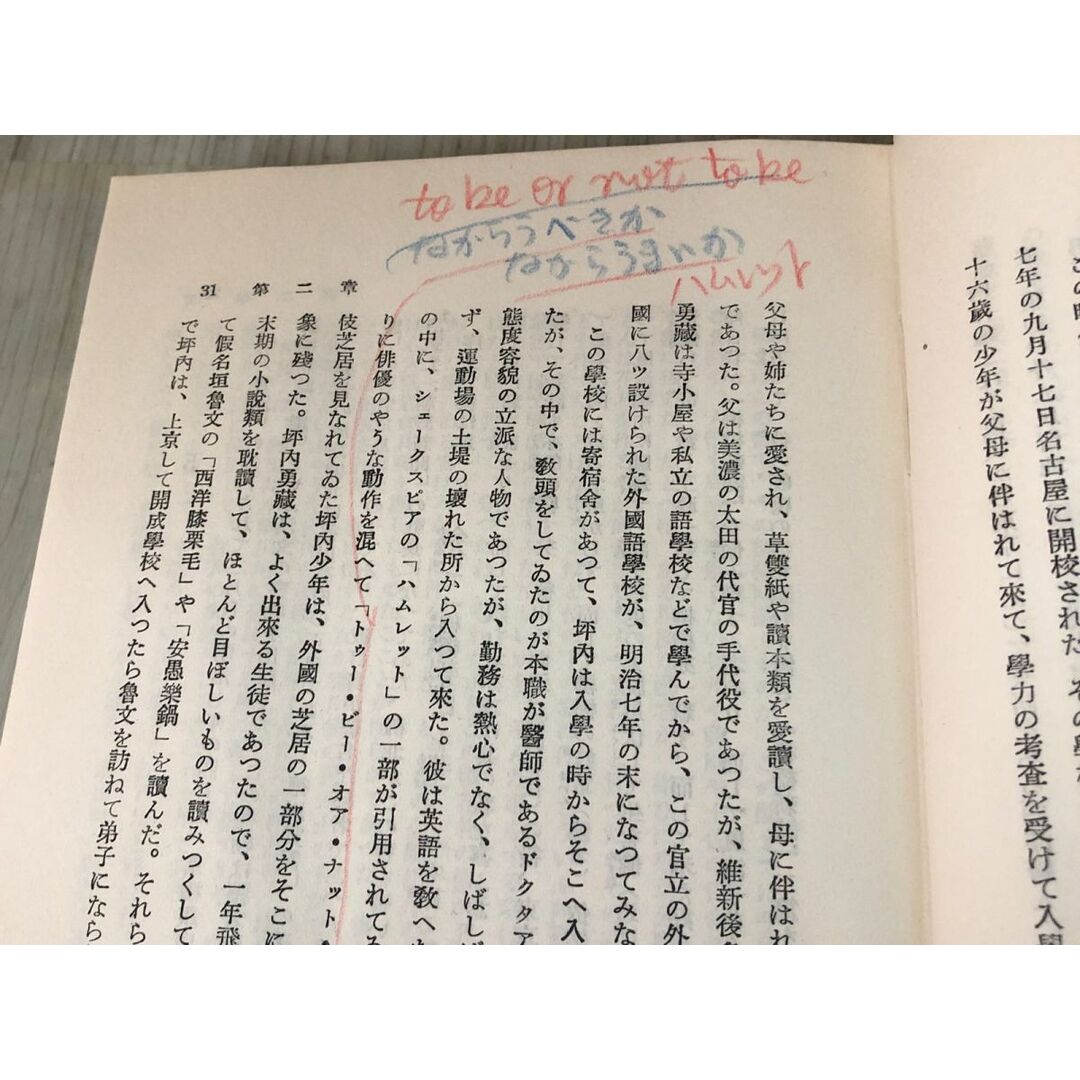 to be or not to be
(ながらうべきか
ながらうまいか)
ハムレット
七年の九月十七日名古屋に開校された
十六歳の少年が父母に伴はれて來て、學力の考査を受けて入學
父母や姉たちに愛され、草雙紙や讀本類を愛讀し、母に伴はれ
であつた。父は美濃の太田の代官の手代役であつたが、維新後
勇藏は寺小屋や私立の語學校などで學んでから、この官立の外
國に八ッ設けられた外國語學校が、明治七年の末になつてみな
この學校には寄宿舍があつて、坪內は入學の時からそこへ入
たが、その中で、敎頭をしてゐたのが本職が醫師であるドクタア
態度容貌の立派な人物であつたが、勤務は熱心でなく、しばしば
ず、運動場の土堤の壞れた所から入つて來た。彼は英語を敎へ
の中に、シェークスピアの「ハムレット」の一部が引用されて
りに俳優のやうな動作を混へて「トゥー・ビー・オア・ナット・
伎芝居を見なれてゐた坪內少年は、外國の芝居の一部分をそこに
象に殘つた。坪內勇藏は、よく出來る生徒であつたので、一年飛
末期の小說類を耽讀して、ほとんど目ぼしいものを讀みつくして
て假名垣魯文の「西洋膝栗毛」や「安愚樂鍋」を讀んだ。それら
で坪內は、上京して開成學校へ入つたら魯文を訪ねて弟子になら
31 第二章